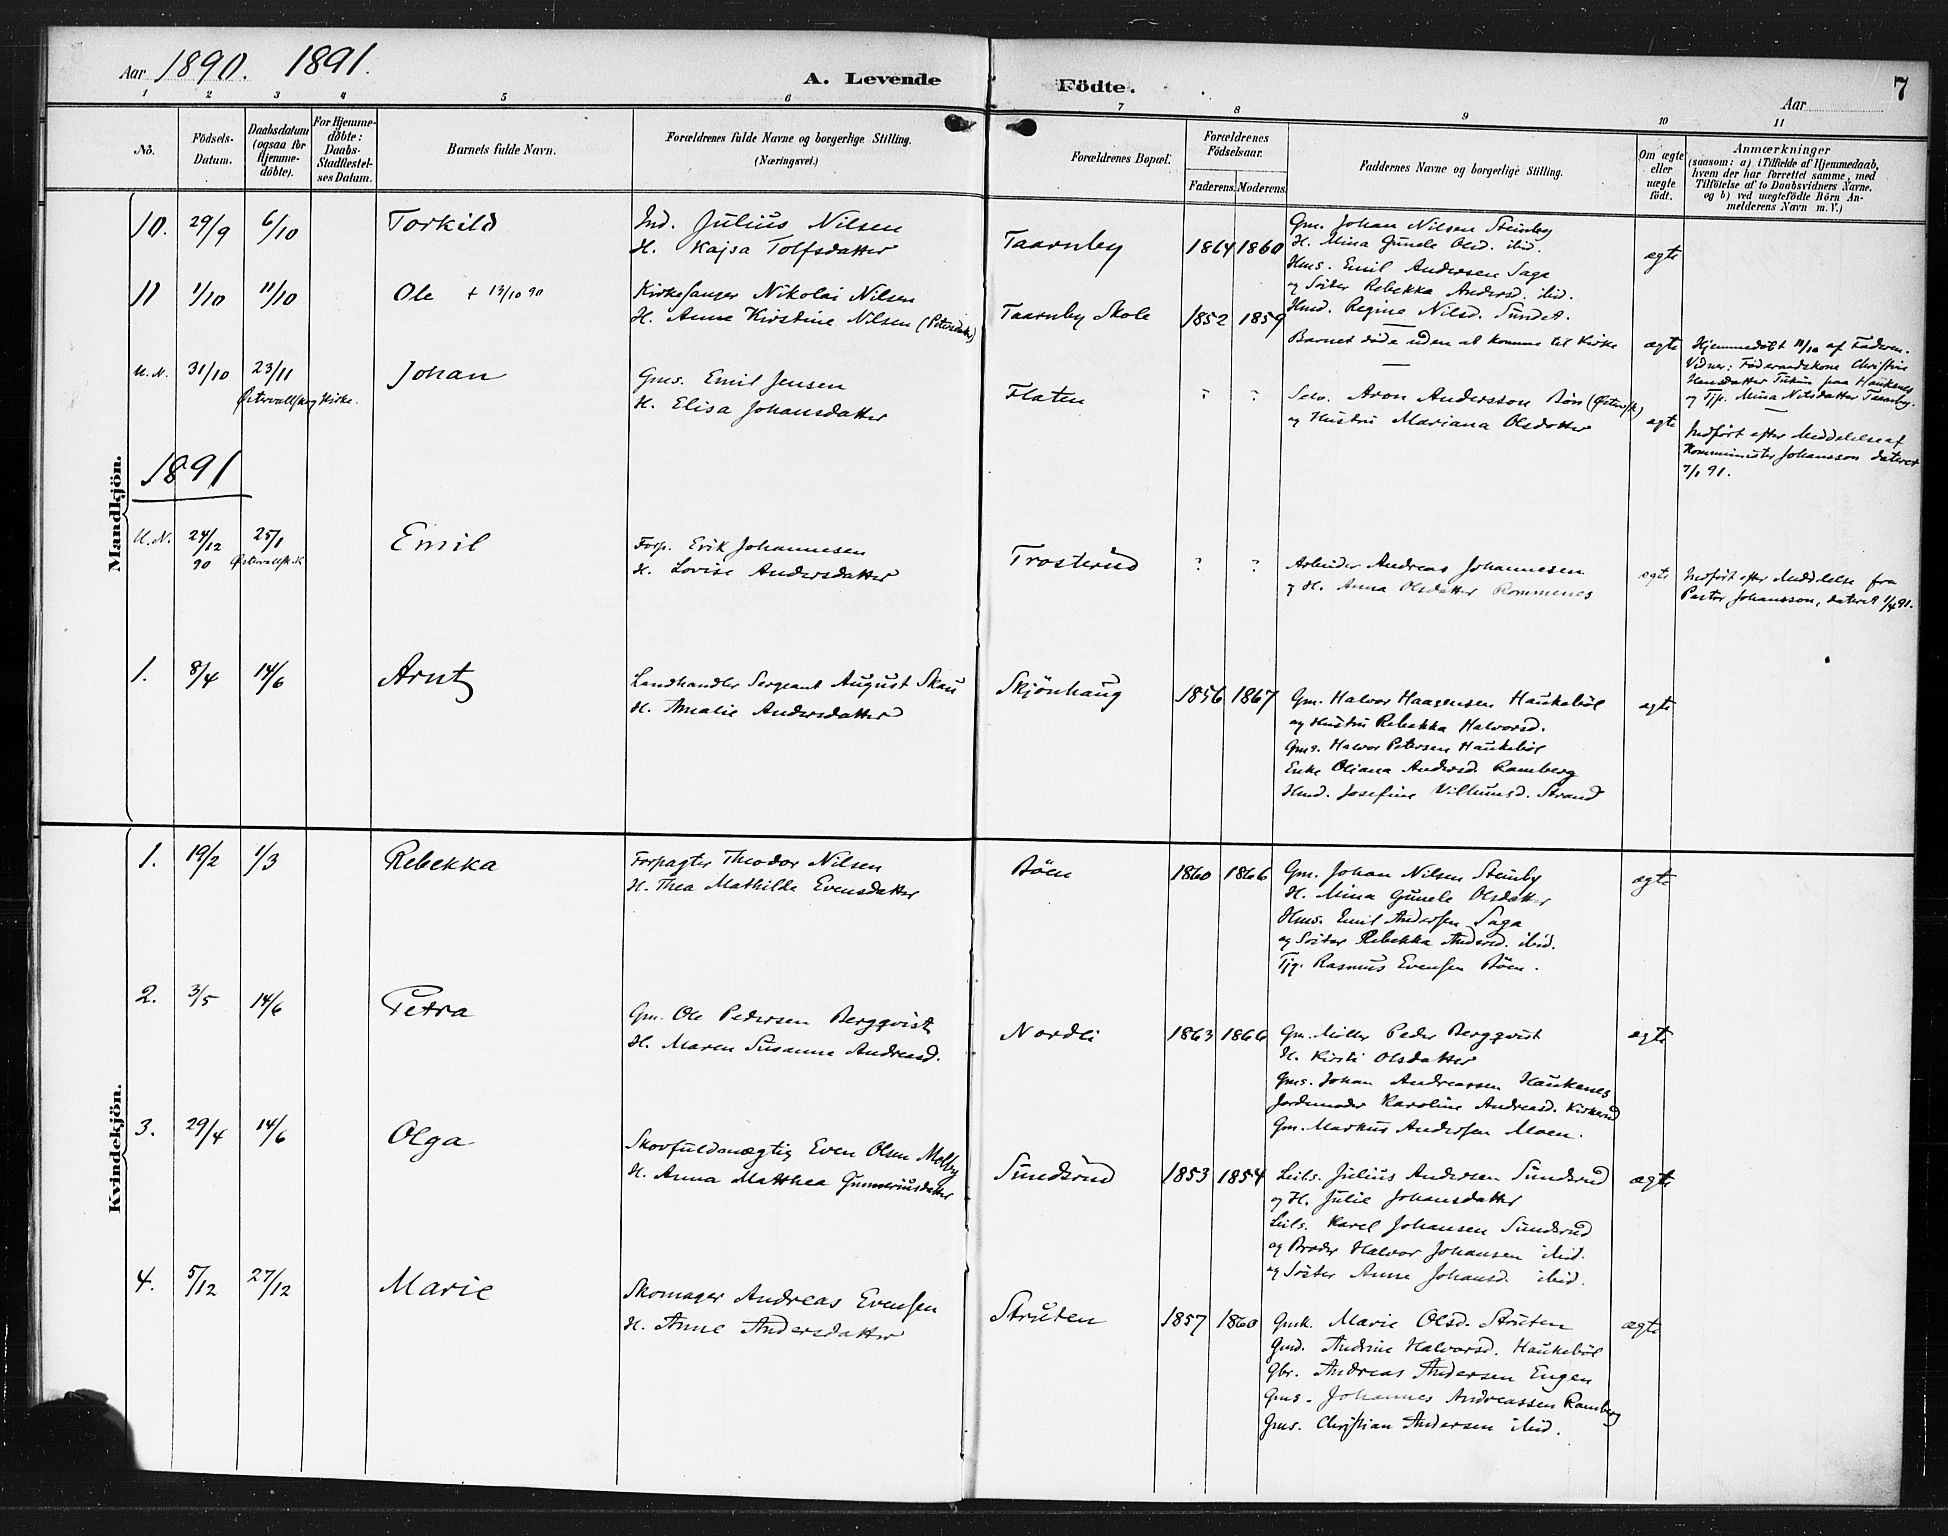 Aar 1890. 1891.
A. Levende Födte.
Aar
7
1 2 3 4 5 6 7 8 9 10 11
No.
Födsels-Datum.
Daabsdatum (ogsaa for Hjemme-döbte).
For Hjemme-döbte: Daabs-Stadfæstel-ses Datum.
Barnets fulde Navn.
Forældrenes fulde Navne og borgerlige Stilling. (Næringsvei.)
Forældrenes Bopæl.
Forældrenes Födselsaar.
Faderens. Moderens.
Faddernes Navne og borgerlige Stilling.
Om ægte eller uægte födt.
Anmærkninger
(saasom: a) i Tilfælde af Hjemmedaab,
hvem der har forrettet samme, med
Tilföielse af to Daabsvidners Navne.
og b) ved uægtefödte Börn An-
melderens Navn m. V.)
Mandkjön.
10. 29/9 6/10 Torkild
Ind. Julius Nilsen
H. Kajsa Tolfsdatter
Taarnby 1864 1860
Gm. Johan Nilsen Steinby
H. Mina Gunele Olsd. ibid.
Hms. Emil Andersen Saga
og Söster Rebekka Andersd. ibid.
Hmd. Regine Nilsd. Sundet.
ægte
11 1/10 11/10 Ole + 13/10 90
Kirkesanger Nikolai Nilsen
H. Anne Kirstine Nilsen (Petersdatter)
Taarnby Skole 1852 1859
Barnet döde uden at komme til Kirke
ægte
Hjemmedöbt 11/10 af Faderen.
Vidner: Föderaadskone Christine
Hansdatter paa Haukenes
og Tjp. Mina Nilsdatter Taarnby.
U.N. 31/10 23/11 Johan
Östervallskog Kirke.
Gms. Emil Jensen
H. Elisa Johansdatter
Flaten ? ?
Selv. Aron Andersson Bön (Östervsk)
og Hustru Mariana Olsdotter
ægte
Indfört efter Meddelelse af
Komminister Johansson dateret
7/1 91.
1891
U.N. 24/12 90 25/1 Emil
Östervallsk. K
Forp. Erik Johannesen
H. Lovise Andersdatter
Trosterud ? ?
Arbeider Andreas Johannesen
og H. Anna Olsdatter Rommenes
ægte
Indfört efter Meddelelse fra
Pastor Johansson, dateret 1/4 91.
1. 8/4 14/6 Arnt
Landhandler Sergeant August Skau
H. Amalie Andersdatter
Skjönhaug 1856 1867
Gm. Halvor Haagensen Haukeböl
og Hustru Rebekka Halvorsd.
Gms. Halvor Petersen Haukeböl
Enke Oliana Andersd. Ramberg
Hmd. Josefine Vilhumsd. Strand
ægte
Kvindekjön.
1. 19/2 1/3 Rebekka
Forpagter Theodor Nilsen
H. Thea Mathilde Evensdatter
Böen 1860 1866
Gm. Johan Nilsen Steinby
H. Mina Gunele Olsdatter
Hms. Emil Andersen Saga
og Söster Rebekka Andersd. ibid.
Tjg. Rasmus Evensen Böen.
ægte
2. 3/5 14/6 Petra
Gm. Ole Pedersen Bergqvist
H. Maren Susanne Andreasd.
Nordli 1863 1866
Gm. Möller Peder Bergqvist
H. Kirsti Olsdatter
Gms. Johan Andreassen Haukenes
Jordemoder Karoline Andreasd. Kirkerud
Gm. Markus Andersen Moen.
ægte
3. 29/4 14/6 Olga
Skovfuldmægtig Even Olsen Melby
H. Anna Matthea Gunneriusdatter
Sundsrud 1853 1854
Leils. Julius Andersen Sundsrud
og H. Julie Johansdatter
Leils. Karel Johansen Sundsrud
og Broder Halvor Johansen ibid.
og Söster Anne Johansd. ibid.
ægte
4. 5/12 27/12 Marie
Skomager Andreas Evensen
H. Anne Andersdatter
Struten 1857 1860
Gmk. Marie Olsd. Struten
Gmd. Andrine Halvorsd. Haukeböl
Gbr. Andreas Andersen Engen
Gms. Johannes Andreassen Ramberg
Gms. Christian Andersen ibid.
ægte